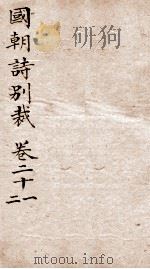 國朝詩別裁 卷二十一
二
mtoou.info